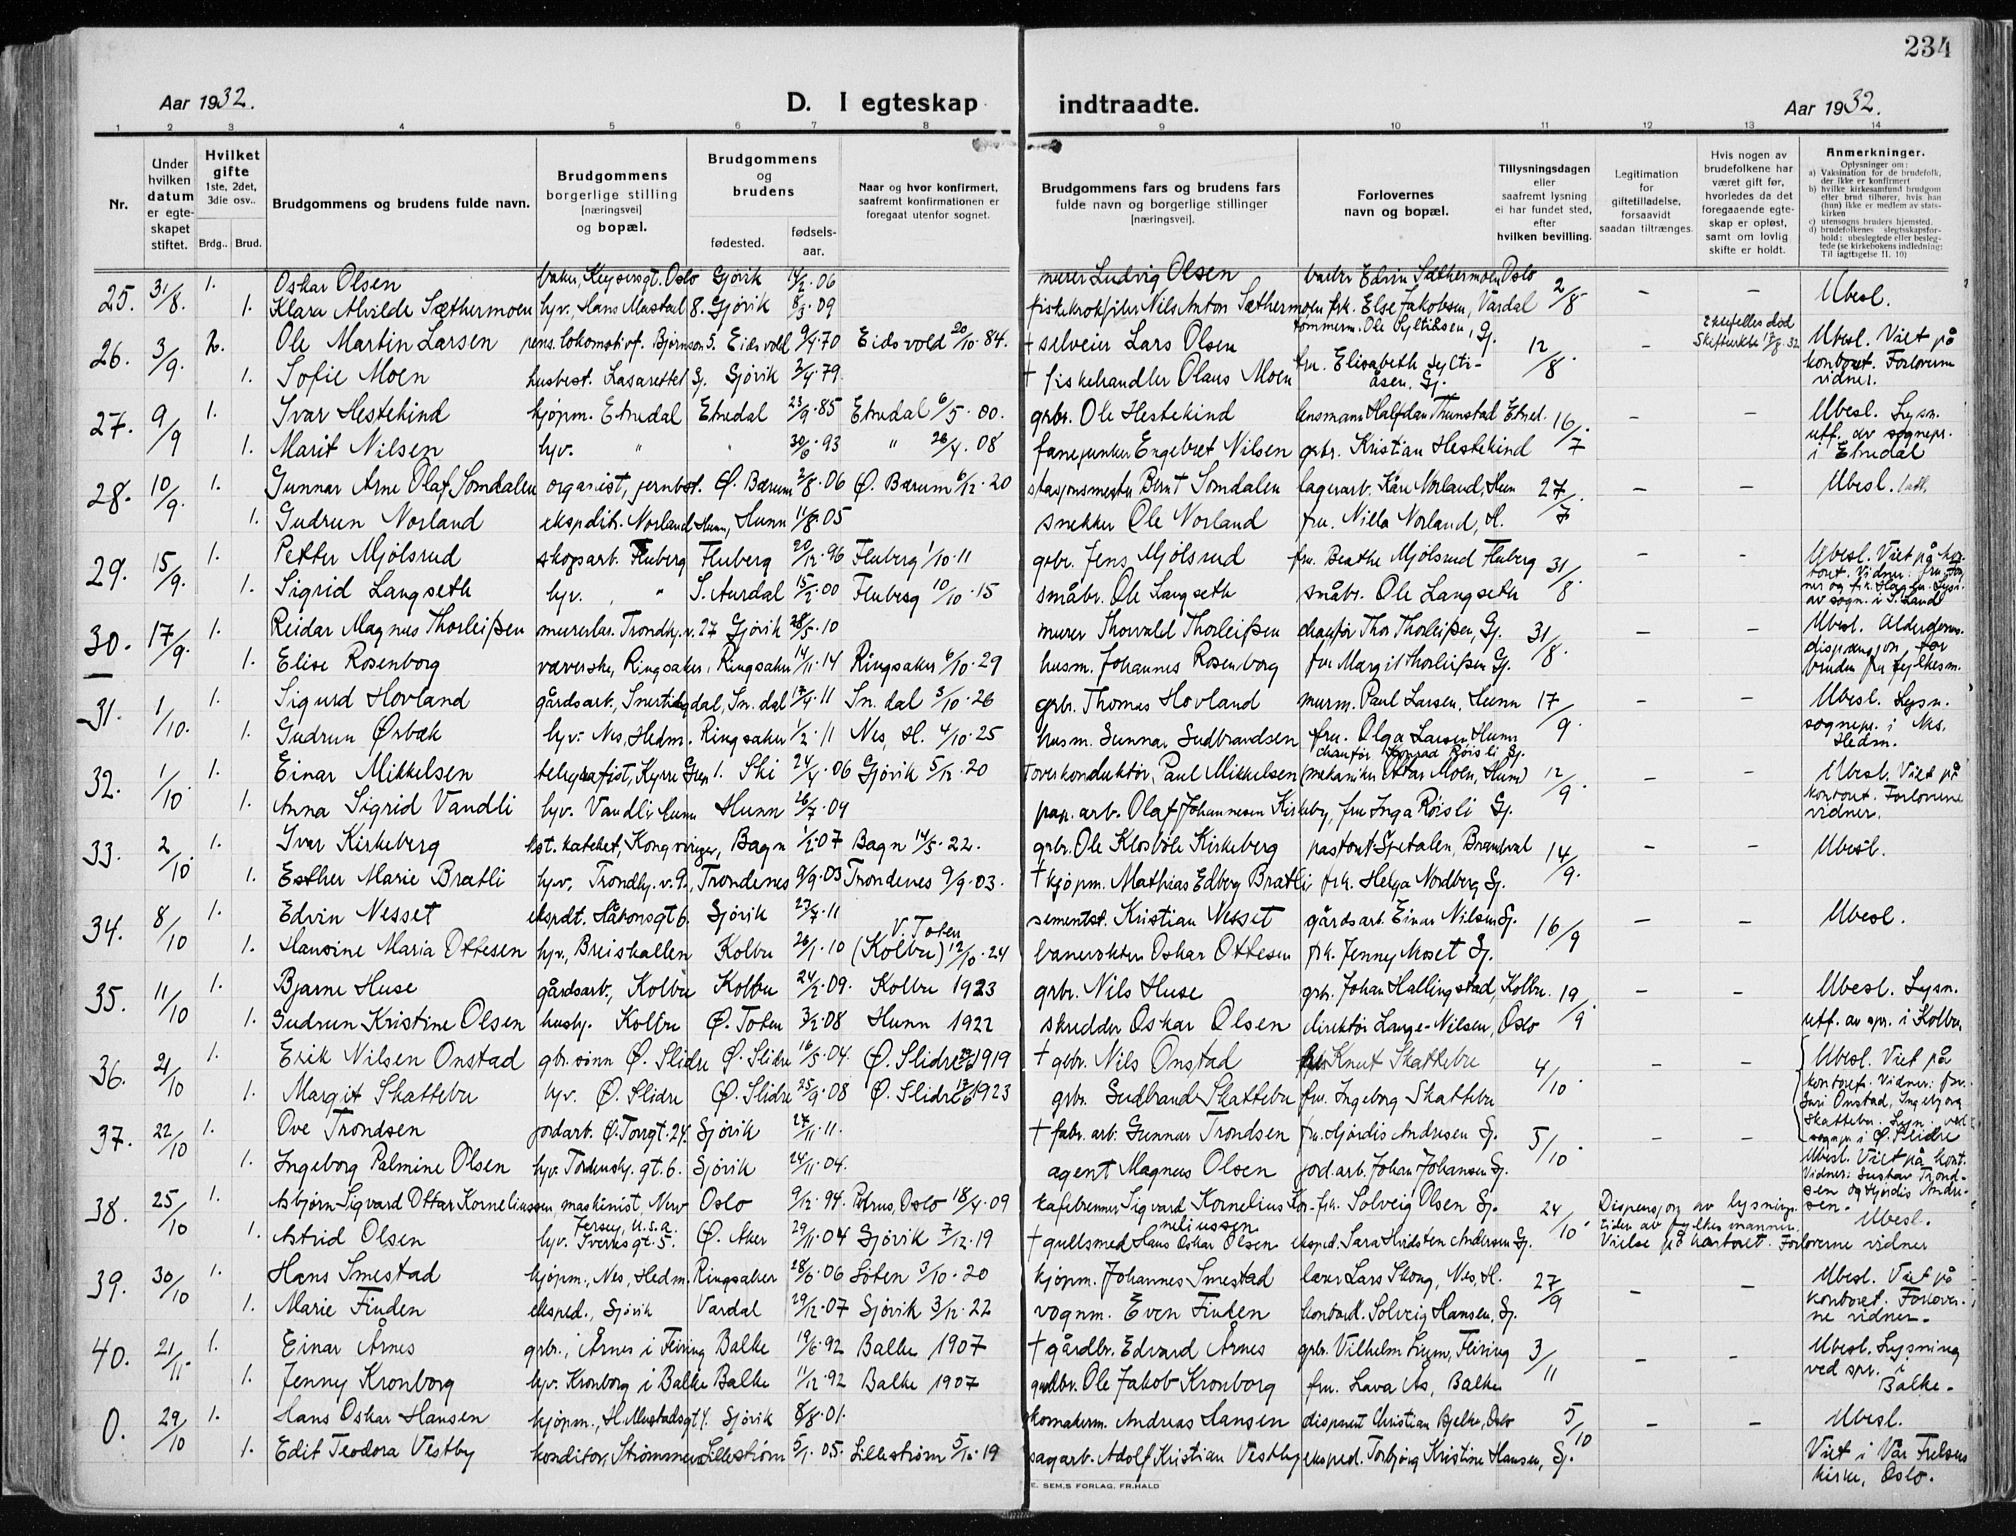 234
Aar 1932. D. I egteskap indtraadte. Aar 1932.
1 2 3 4 5 6 7 8 9 10 11 12 13 14
Nr.
Under hvilken datum er egteskapet stiftet.
Hvilket gifte 1ste, 2det, 3die osv..
Brdg.. Brud.
Brudgommens og brudens fulde navn.
Brudgommens borgerlige stilling [næringsvei] og bopæl.
Brudgommens og brudens
fødested. fødsels-aar.
Naar og hvor konfirmert, saafremt konfirmationen er foregaat utenfor sognet.
Brudgommens fars og brudens fars fulde navn og borgerlige stillinger [næringsvei].
Forlovernes navn og bopæl.
Tillysningsdagen eller saafremt lysning ei har fundet sted, efter hvilken bevilling.
Legitimation for giftetilladelse, forsaavidt saadan tiltrænges.
Hvis nogen av brudefolkene har været gift før, hvorledes da det foregaaende egteskap er opløst, samt om lovlig skifte er holdt.
Anmerkninger.
Oplysninger om:
a) Vaksination for de brudefolk, der ikke er konfirmert
b) hvilke kirkesamfund brudgom eller brud tilhører, hvis han (hun) ikke er medlem av statskirken
c) utensogns bruders hjemsted.
d) brudefolkenes slegtsskapsforhold: ubeslegtede eller beslegtede (se kirkebokens indledning: Til iagttagelse II, 10)
25. 31/8. 1. Oskar Olsen baker, Keysersgt. Oslo Gjøvik 14/2.06 murer Ludvig Olsen Edvin Sæthermoen Oslo 2/8 – – Ubesl.
1. Klara Alvilde Sæthermoen hjv. Hans Mustad 8. Gjøvik 8/3.09 Nils Anton Sæthermoen frk. Else Jakobsen, Vardal
26. 3/9. 2. Ole Martin Larsen pens. lokomotivf. Bjørnson 5. Eidsvold 9/4.70 Eidsvold 20/10.84. † selveier Lars Olsen tømmerm. Ole Gj. 12/8. – Ektefelles død Ubesl. Viet på
1. Sofie Moen husbest. Lasarettet Gj. Gjøvik 3/4.79. † fiskehandler Olaus Moen fru. Elisabeth Gj. kontoret. Forloverne vidner.
27. 9/9 1. Ivar Hestekind kjøpm. Etnedal Etnedal 23/9.85 Etnedal 6/5.00. grbr. Ole Hestekind lensmann Halfdan Thunstad Etned. 16/7. – – Ubesl. Lysn.
1. Marit Nilsen hjv. " " 30/6.93 " 26/4.08 fanejunker Engebret Nilsen grbr. Kristian Hestekind utf. av sognepr. i Etnedal
28. 10/9. 1. Gunnar Arne Olaf Somdalen organist, jernbst. Ø. Bærum 2/8.06 Ø. Bærum 6/12.20 stasjonsmester Bernt Somdalen lagerarb. Kåre Norland, Hunn 27/7. – – Ubesl.
1. Gudrun Norland ekspditr. Norland Hunn, Hunn 11/8.05 snekker Ole Norland fru. Norland, H.
29. 15/9. 1. Petter Mjølsrud skogsarb. Fluberg Fluberg 20/12.96 Fluberg 1/10.11 grbr. Jens Mjølsrud fru Beathe Mjølsrud Fluberg 31/8 – – Ubesl. Viet på kontoret. Vidner:
1. Sigrid Langseth hjv. " S. Aurdal 15/2.00 Fluberg 10/10.15 småbr. Ole Langseth småbr. Ole Langseth av sogn. i S. Land
30. 17/9. 1. Reidar Magnus Thorleifsen murerlær. Trondhj.v. 27 Gjøvik 28/5.10 murer Thorvald Thorleifsen chauffør Thor Thorleifsen, Gj. 31/8. – – Ubesl. Aldersdispensasjon for
1. Elise Rosenborg væverske, Ringsaker, Ringsaker 14/11.14 Ringsaker 6/10.29 husm. Johannes Rosenborg fru Margit Thorleifsen Gj. bruden fra fylkesm.
31. 1/10. 1. Sigurd Hovland gårdsarb., Snertingdal, Sn.dal 17/4.11 Sn.dal 3/10.26 grbr. Thomas Hovland murm. Paul Larsen, Hunn 17/9. – – Ubesl. Lysn.
1. Gudrun Ørbæk hjv. Nes, Hedm. Ringsaker 1/2.11 Nes, H. 4/10.25 husm. Gunnar Gudbrandsen fru. Olga Larsen Hunn sognepr. i Nes, Hedm.
32. 1/10 1. Einar Mikkelsen telegrafist, Kyrre Grep 1. Ski 24/4.06 Gjøvik 5/12.20 overkonduktør, Paul Mikkelsen chauffør Konrad Røisli Gj. (mekaniker Ottar Moen, Hunn) 12/9. – – Ubesl. Viet på
1. Anna Sigrid Vandli hjv. Vandli Hunn Hunn 26/7.04 pap.arb. Olaf Johannesen Kirkeby, fru Inga Røisli Gj. kontoret. Forloverne vidner.
33. 2/10 1. Iver Kirkeberg kst. kateket, Kongsvinger, Bagn 1/2.07 Bagn 14/5.22. grbr. Ole Klosbøle Kirkeberg pastor Spetalen, Brandval 14/9. – – Ubesl.
1. Esther Marie Bratli hjv. Trondhj.v. 9. Trondenes 9/9.03 Trondenes 9/9.03. † kjøpm. Mathias Edberg Bratli frk. Helga Nordberg Gj.
34. 8/10 1. Edvin Nesset ekspdt. Håkonsgt 6. Gjøvik 27/7.11 sementst. Kristian Nesset gårdsarb. Einar Nilsen Gj. 16/9 – – Ubesl.
1. Hansine Maria Ottesen hjv., Breiskallen Kolbu 26/1.10 V. Toten (Kolbu) 12/10.24 banevokter Oskar Ottesen frk. Jenny Moset Gj.
35. 11/10 1. Bjarne Huse gårdsarb., Kolbu Kolbu 24/2.09. Kolbu 1923 grbr. Nils Huse grbr. Johan Hallingstad, Kolbu. 19/9. – – Ubesl. Lysn.
1. Gudrun Kristine Olsen hushj. Kolbu Ø. Toten 3/2.08 Hunn 1922 skredder Oskar Olsen direktør Lange-Nilsen, Oslo utf. av spr. i Kolbu
36. 21/10 1. Erik Nilsen Onstad gbr.sønn Ø. Slidre Ø. Slidre 16/5.04. Ø. Slidre 1919 † gbr. Nils Onstad Knut Skattebu 4/10. – – Ubesl. Viet på
1. Margit Skattebu hjv. Ø. Slidre Ø. Slidre 25/9.08 Ø. Slidre 1923 grbr. Gudbrand Skattebu fru. Ingeborg Skattebu kontoret. Vidner: fru. Guri Onstad, Ingebjørg Skattebu. Lysn. ved sognpr i Ø. Slidre
37. 22/10 1. Ove Trondsen jordarb. Ø. Torvgt. 24. Gjøvik 27/11.11. † fabr.arb. Gunnar Trondsen fru Hjørdis Andresen Gj. 5/10. – – Ubesl. Viet på kont.
1. Ingeborg Palmine Olsen hjv. Tordenskj. gt. 6. Gjøvik 24/11.04. agent Magnus Olsen jord.arb. Johan Johansen Gj. Vidner: Gustav Trondsen og Hjørdis Andresen.
38. 25/10 1. Asbjørn Sigvard Ottar Korneliussen, maskinist, New Jersey, U.S.A. Oslo 9/12.94. Petrus, Oslo 18/4.09 kafebrenner Sigvard Kornelius Korneliussen frk. Solveig Olsen Gj. 24/10. Dispensasjon av lysningstiden av fylkesmannen. Ubesl.
1. Astrid Olsen hjv. Iversgt. 5. Ø. Aker 29/11.04 Gjøvik 7/12.19 † gullsmed Hans Oskar Olsen eksped. Sara Hvidsten Andersen Gj. Vielse på kontoret. Forloverne vidner
39. 30/10 1. Hans Smestad kjøpm., Nes, Hedm. Ringsaker 28/6.06 Løten 3/10.20 kjøpm. Johannes Smestad lærer Lars Skong, Nes, H. 27/9 – – Ubesl. Viet på
1. Marie Finden eksped., Gjøvik Vardal 29/12.07 Gjøvik 3/12.22 vognm. Even Finden kontord. Solveig Hansen, Gj. kontoret. Forloverne vidner.
40. 21/11. 1. Einar Årnes grbr., Årnes i Feiring Balke 19/6.92 Balke 1907 † gårdbr. Edvard Årnes grbr. Vilhelm Lysm, Feiring 3/11 – – Ubesl. Lysning
1. Jenny Kronborg hjv. Kronborg i Balke Balke 11/12.92 Balke 1907 grdbr. Ole Jakob Kronborg fru. Lava Ås, Balke ved spr. i Balke.
0. 29/10 1. Hans Oskar Hansen kjøpm., H. Mustadsgt 4. Gjøvik 8/8.01. skomakerm. Andreas Hansen disponent Christian Bjelke, Oslo 5/10 – – Ubesl.
1. Edit Teodora Vestby konditor, Strømmen Lillestrøm 5/1.05. Lillestrøm 5/10.19 sagarb. Adolf Kristian Vestby eksped. Torbjørg Kristine Hansen, Gj. Viet i Vår Frelsers kirke, Oslo.
E. SEM,S FORLAG, FR.HALD